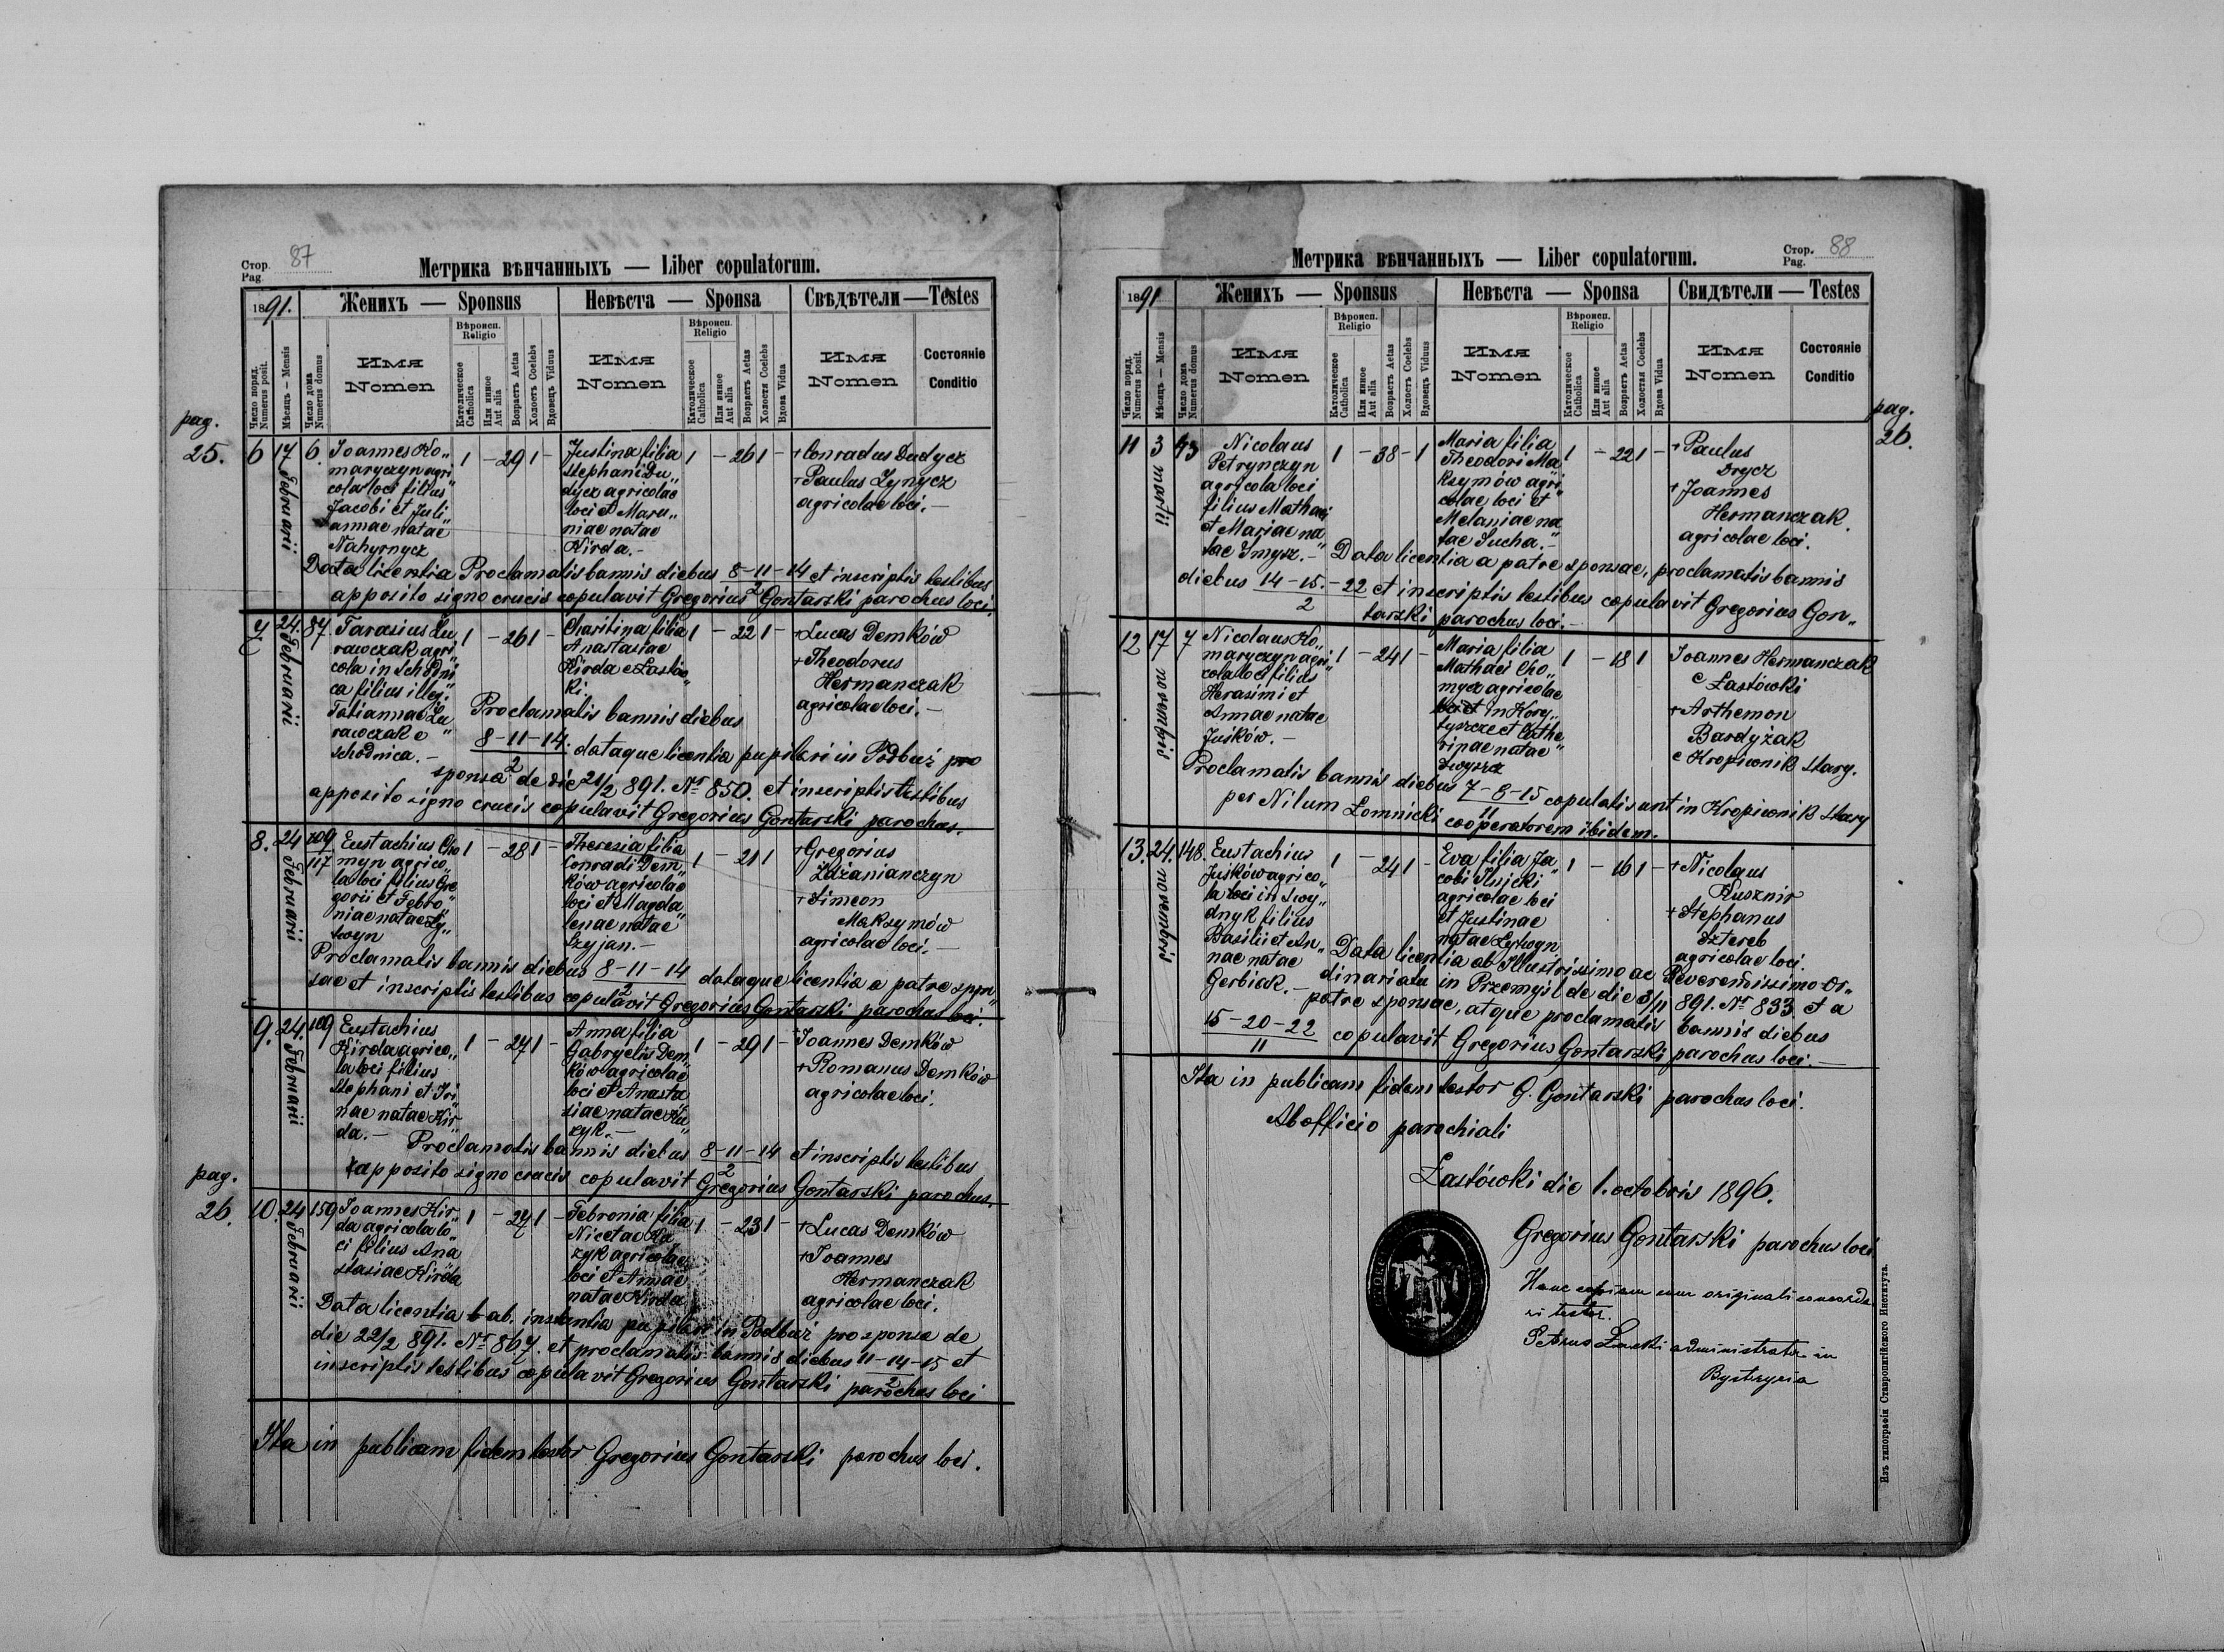 Стор. Pag. 87
Метрика вѣнчанныхъ — Liber copulatorum.
1891.
Женихъ — Sponsus
Невѣста — Sponsa
Свѣдѣтели — Testes
Число поряд. Numerus posit.
Мѣсяцъ — Mensis
Число дома Numerus domus
Имя Nomen
Вѣроисп. Religio
Католическое Catholica
Или инное Aut alia
Возрастъ Aetas
Холостъ Coelebs
Вдовецъ Viduus
Имя Nomen
Вѣроисп. Religio
Католическое Catholica
Или инное Aut alia
Возрастъ Aetas
Холостя Coelebs
Вдова Vidua
Имя Nomen
Состояніе Conditio
pag. 25.
6 17 Februarii 6.
Joannes Ko„
maryczyn agri„
cola loci filius
Jacobi et Juli„
annae natae
Nahyrnycz
1 – 29 1 –
Justina filia
Stephani Du„
dycz agricolae
loci et Maru„
niae natae
Kirda.–
1 – 26 1 –
+ Conradus Dudycz
+ Paulus Zynycz
agricolae loci.–
Data licentia Proclamatis bannis diebus 8–11–14/2 et inscriptis testibus
apposito signo crucis copulavit Gregorius Gontarski parochus loci.
7. 24. Februarii 87.
Tarasius Lu„
rawczak agri„
cola in Schodni„
ca filius illeg.
Tatiannae Lu„
rawczak e
Schodnica.–
1 – 26 1 –
Charitina filia
Anastasiae
Kirda e Łastów„
ki.
1 – 22 1 –
+ Lucas Demków
+ Theodorus
Hermanczak
agricolae loci.–
Proclamatis bannis diebus
8–11–14/2. dataque licentia pupilari in Podbuż pro
sponsa de die 21/2 891. Nr 850. et inscriptis testibus
apposito signo crucis copulavit Gregorius Gontarski parochus.
8. 24 Februarii 109 117
Eustachius Cho„
myn agrico„
la loci filius Gre„
gorii et Febro„
niae natae Ły„
twyn
1 – 28 1 –
Theresia filia
Conradi Dem„
ków agricolae
loci et Magda„
lenae natae
Szyjan.–
1 – 21 1
+ Gregorius
Zdzanianczyn
+ Simeon
Maksymów
agricolae loci.–
Proclamatis bannis diebus 8–11–14/2 dataque licentia a patre spon„
sae et inscriptis testibus copulavit Gregorius Gontarski parochus loci.
9. 24 Februarii 109
Eustachius
Kirda agrico„
la loci filius
Stephani et Iri„
nae natae Kir„
da.–
1 – 27 1 –
Anna filia
Gabryelis Dem„
ków agricolae
loci et Anasta„
siae natae Ku„
zyk.–
1 – 29 1 –
+ Joannes Demków
+ Romanus Demków
agricolae loci.
Proclamatis bannis diebus 8–11–14/2 et inscriptis testibus
apposito signo crucis copulavit Gregorius Gontarski parochus.
pag. 26.
10. 24 Februarii 159
Joannes Kir„
da agricola lo„
ci filius Ana„
stasiae Kirda
1 – 27 1 –
Febronia filia
Nicetae Ku„
zyk agricolae
loci et Annae
natae Kirda
1 – 23 1 –
+ Lucas Demków
+ Joannes
Hermanczak
agricolae loci.
Data licentia ab. instantia pupilari in Podbuż pro sponsa de
die 22/2 891. Nr 867. et proclamatis bannis diebus 11–14–15/2 et
inscriptis testibus copulavit Gregorius Gontarski parochus loci
Ita in publicam fidem testor Gregorius Gontarski parochus loci.
Стор. Pag. 88
Метрика вѣнчанныхъ — Liber copulatorum.
1891
Женихъ — Sponsus
Невѣста — Sponsa
Свидѣтели — Testes
Число поряд. Numerus posit.
Мѣсяцъ — Mensis
Число дома Numerus domus
Имя Nomen
Вѣроисп. Religio
Католическое Catholica
Или инное Aut alia
Возрастъ Aetas
Холостъ Coelebs
Вдовецъ Viduus
Имя Nomen
Вѣроисп. Religio
Католическое Catholica
Или инное Aut alia
Возрастъ Aetas
Холостая Coelebs
Вдова Vidua
Имя Nomen
Состояніе Conditio
pag. 26.
11 3 martii 43
Nicolaus
Petrynczyn
agricola loci
filius Mathaei
et Mariae na„
tae Smysz.–
1 – 38 – 1
Maria filia
Theodori Ma„
ksymów agri„
colae loci et
Melaniae na„
tae Sucha.–
1 – 22 1 –
+ Paulus
Drycz
+ Joannes
Hermanczak.
agricolae loci.
Data licentia a patre sponsae, proclamatis bannis
diebus 14–15–22/2 et inscriptis testibus copulavit Gregorius Gon„
tarski parochus loci.–
12 17 novembris 7
Nicolaus Ko„
maryczyn agri„
cola loci filius
Herasimi et
Annae natae
Juśków.–
1 – 24 1 –
Maria filia
Mathaei Cho„
mycz agricolae
loci et in Kory„
tyszcze et Cathe„
rinae natae
1 – 18 1
Joannes Hermanczak
e Łastówki
+ Arthemon
Bardyżak
e Kropiwnik Stary.
Proclamatis bannis diebus 7–8–15/11 copulati sunt in Kropiwnik Stary
per Nilum Łomnicki cooperatorem ibidem.
13. 24. novembris 148.
Eustachius
Juśków agrico„
la loci in Swy„
dnyk filius
Basilii et An„
nae natae
Gerbiak.–
1 – 24 1 –
Eva filia Ja„
cobi Ilnicki
agricolae loci
et Justinae
natae Lytwyn
1 – 16 1 –
+ Nicolaus
Kusznir
+ Stephanus
Sztereb
agricolae loci.
Data licentia ab Illustrissimo ac Reverendissimo Or„
dinariatu in Przemyśl de die 3/11 891. Nr 833. et a
patre sponsae, atque proclamatis bannis diebus
15–20–22/11 copulavit Gregorius Gontarski parochus loci.–
Ita in publicam fidem testor G. Gontarski parochus loci.
Ab officio parochiali
Łastówki die 1. octobris 1896.
Gregorius Gontarski parochus loci
Hanc copiam cum originali concorda
ri testor.
Petrus administrator in
Bystrycia
Изъ типографіи Ставропигійского Института.